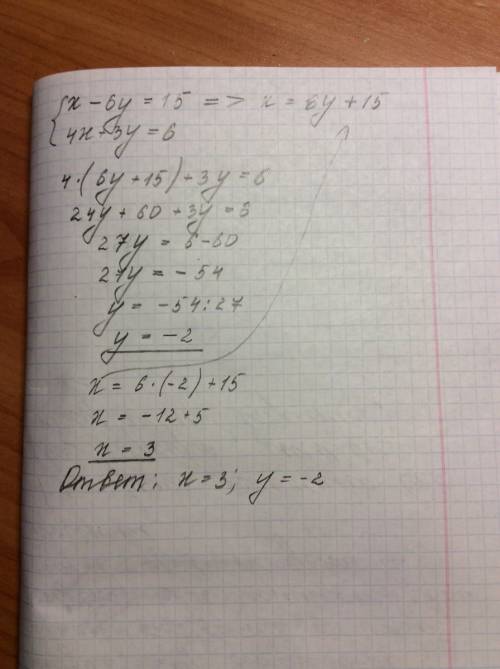 {x - 6y = 15 => x = 6y + 15
4x + 3y = 6
4·(6y + 15) + 3y = 6
24y + 60 + 3y = 6
27y = 6 - 60
27y = - 54
y = -54 : 27
y = -2
x = 6·(-2) + 15
x = -12 + 5
x = 3
Ответ: x = 3; y = -2